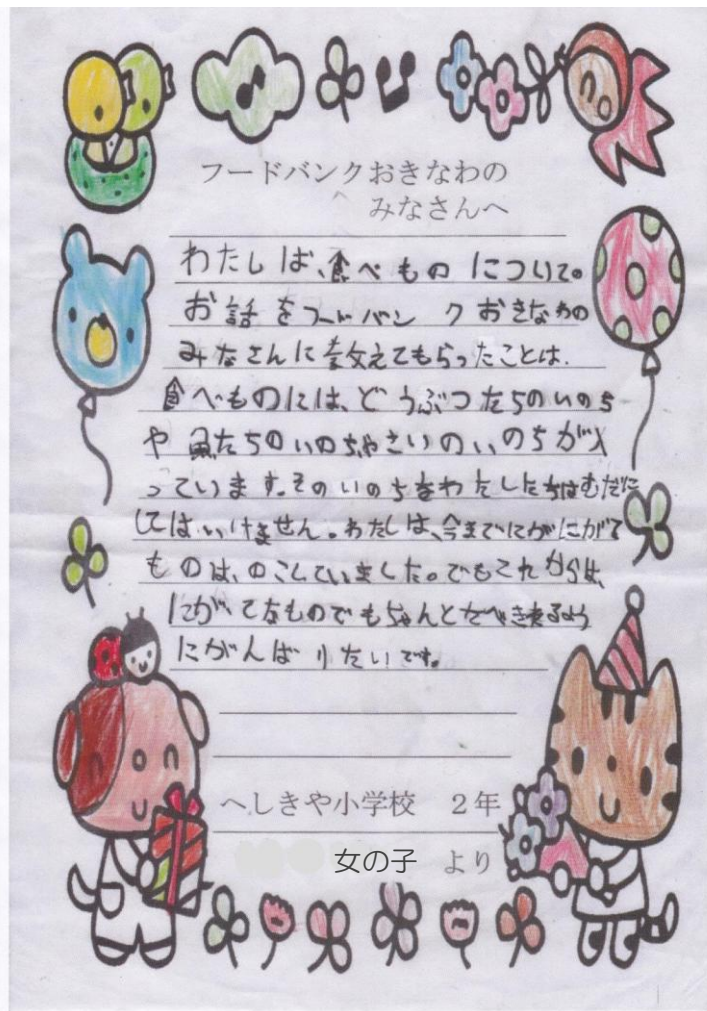 フードバンクおきなわの
みなさんへ
わたしは、食べものについての
お話をフードバンクおきなわの
みなさんに教えてもらったことは、
食べものには、どうぶつたちのいのち
や魚たちのいのちやさいのいのちが入
っています。そのいのちをわたしたちはむだに
してはいけません。わたしは、今までにがにがて
ものは、のこしていました。でもこれからは、
にがてなものでもちゃんとたべき来るよう
にがんばりたいです。
へしきや小学校 2年
女の子 より